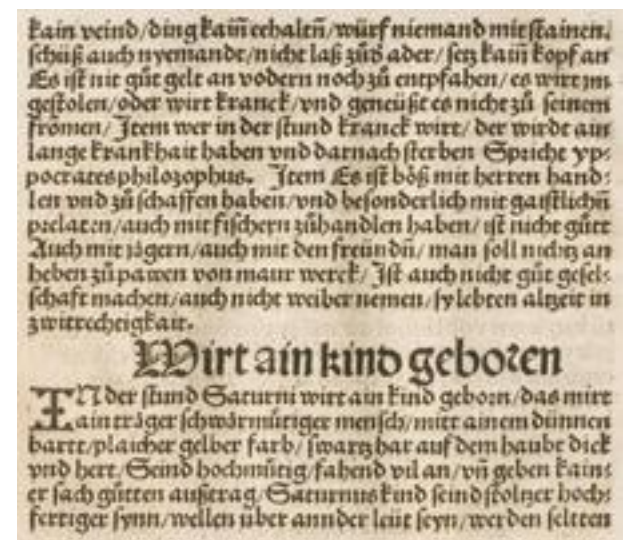 kain veind/ding kain̄ eehaltn̄/würf niemand mit stainen.
schüß auch nyemandt/nicht laß zůr ader/setz kain̄ kopf an
Es ist nit gůt gelt an vodern noch zů entpfahen/es wirt im
gestolen/oder wirt kranck/vnd geneüßt es nicht zů seinem
frömen/Item wer in der stund kranck wirt/der wirdt ain
lange krankhait haben vnd darnach sterben Spricht yp-
pocrates philozophus. Item Es ist böß mit herren hand-
len vnd zů schaffen haben/vnd besonderlich mit gaistlichn̄
prelaten/auch mit fischern zůhandlen haben/ist nicht gůtt
Auch mit jägern/auch mit den freündn̄/man soll nichtz an
heben zů pawen von maur werck/Ist auch nicht gůt gesel-
schaft machen/auch nicht weiber nemen/sy lebten altzeit in
zwitrechtigkait.
Wirt ain kind geboren
IN der stund Saturni wirt ain kind geborn/das wirt
ain träger schwärmůtiger mensch/mitt ainem dünnen
bartt/plaicher gelber farb/swartz har auf dem haubt dick
vnd hert/Seind hochmůtig/fahend vil an/vn̄ geben kain-
er sach gůtten außtrag/Saturnus kind seind stoltzer hoch-
fertiger synn/wellen über annder leüt seyn/werden seltten